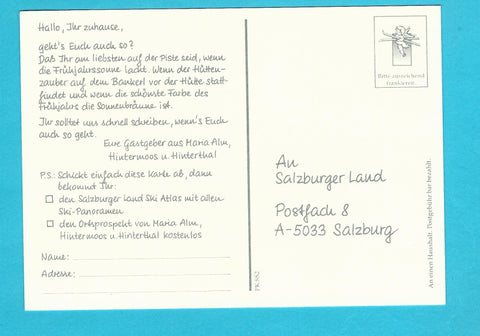 Hallo, Ihr zuhause,
geht's Euch auch so?
Daß Ihr am liebsten auf der Piste seid, wenn
die Frühjahrssonne lacht. Wenn der Hütten-
zauber auf dem Bankerl vor der Hütte statt-
findet und wenn die schönste Farbe des
Frühjahrs die Sonnenbräune ist.
Ihr solltet uns schnell schreiben, wenn's Euch
auch so geht.
Eure Gastgeber aus Maria Alm,
Hintermoos u. Hinterthal
P.S.: Schickt einfach diese Karte ab, dann
bekommt Ihr:
den Salzburger Land Ski Atlas mit allen
Ski-Panoramen
den Ortsprospekt von Maria Alm,
Hintermoos u. Hinterthal kostenlos
Name:
Adresse:
PK 852
Bitte ausreichend
frankieren.
An
Salzburger Land
Postfach 8
A-5033 Salzburg
An einen Haushalt. Postgebühr bar bezahlt.